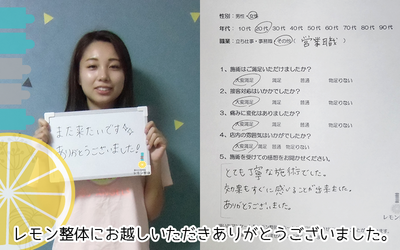 また来たいです
ありがとうございました!
性別: 男性・女性
年代: 10代 20代 30代 40代 50代 60代 70代 80代 90代
職業: 立ち仕事・事務職・その他( 営業職 )
1、施術はご満足いただけましたか?
大変満足 満足 普通 物足りない
2、接客対応はいかがでしたか?
大変満足 満足 普通 物足りない
3、痛みに変化はありましたか?
大変満足 満足 普通 物足りない
4、店内の雰囲気はいかがでしたか?
大変満足 満足 普通 物足りない
5、施術を受けての感想をお聞かせください。
とても丁寧な施術でした。
効果もすぐに感じることが出来ました。
ありがとうございました。
レモン
レモン整体にお越しいただきありがとうございました。